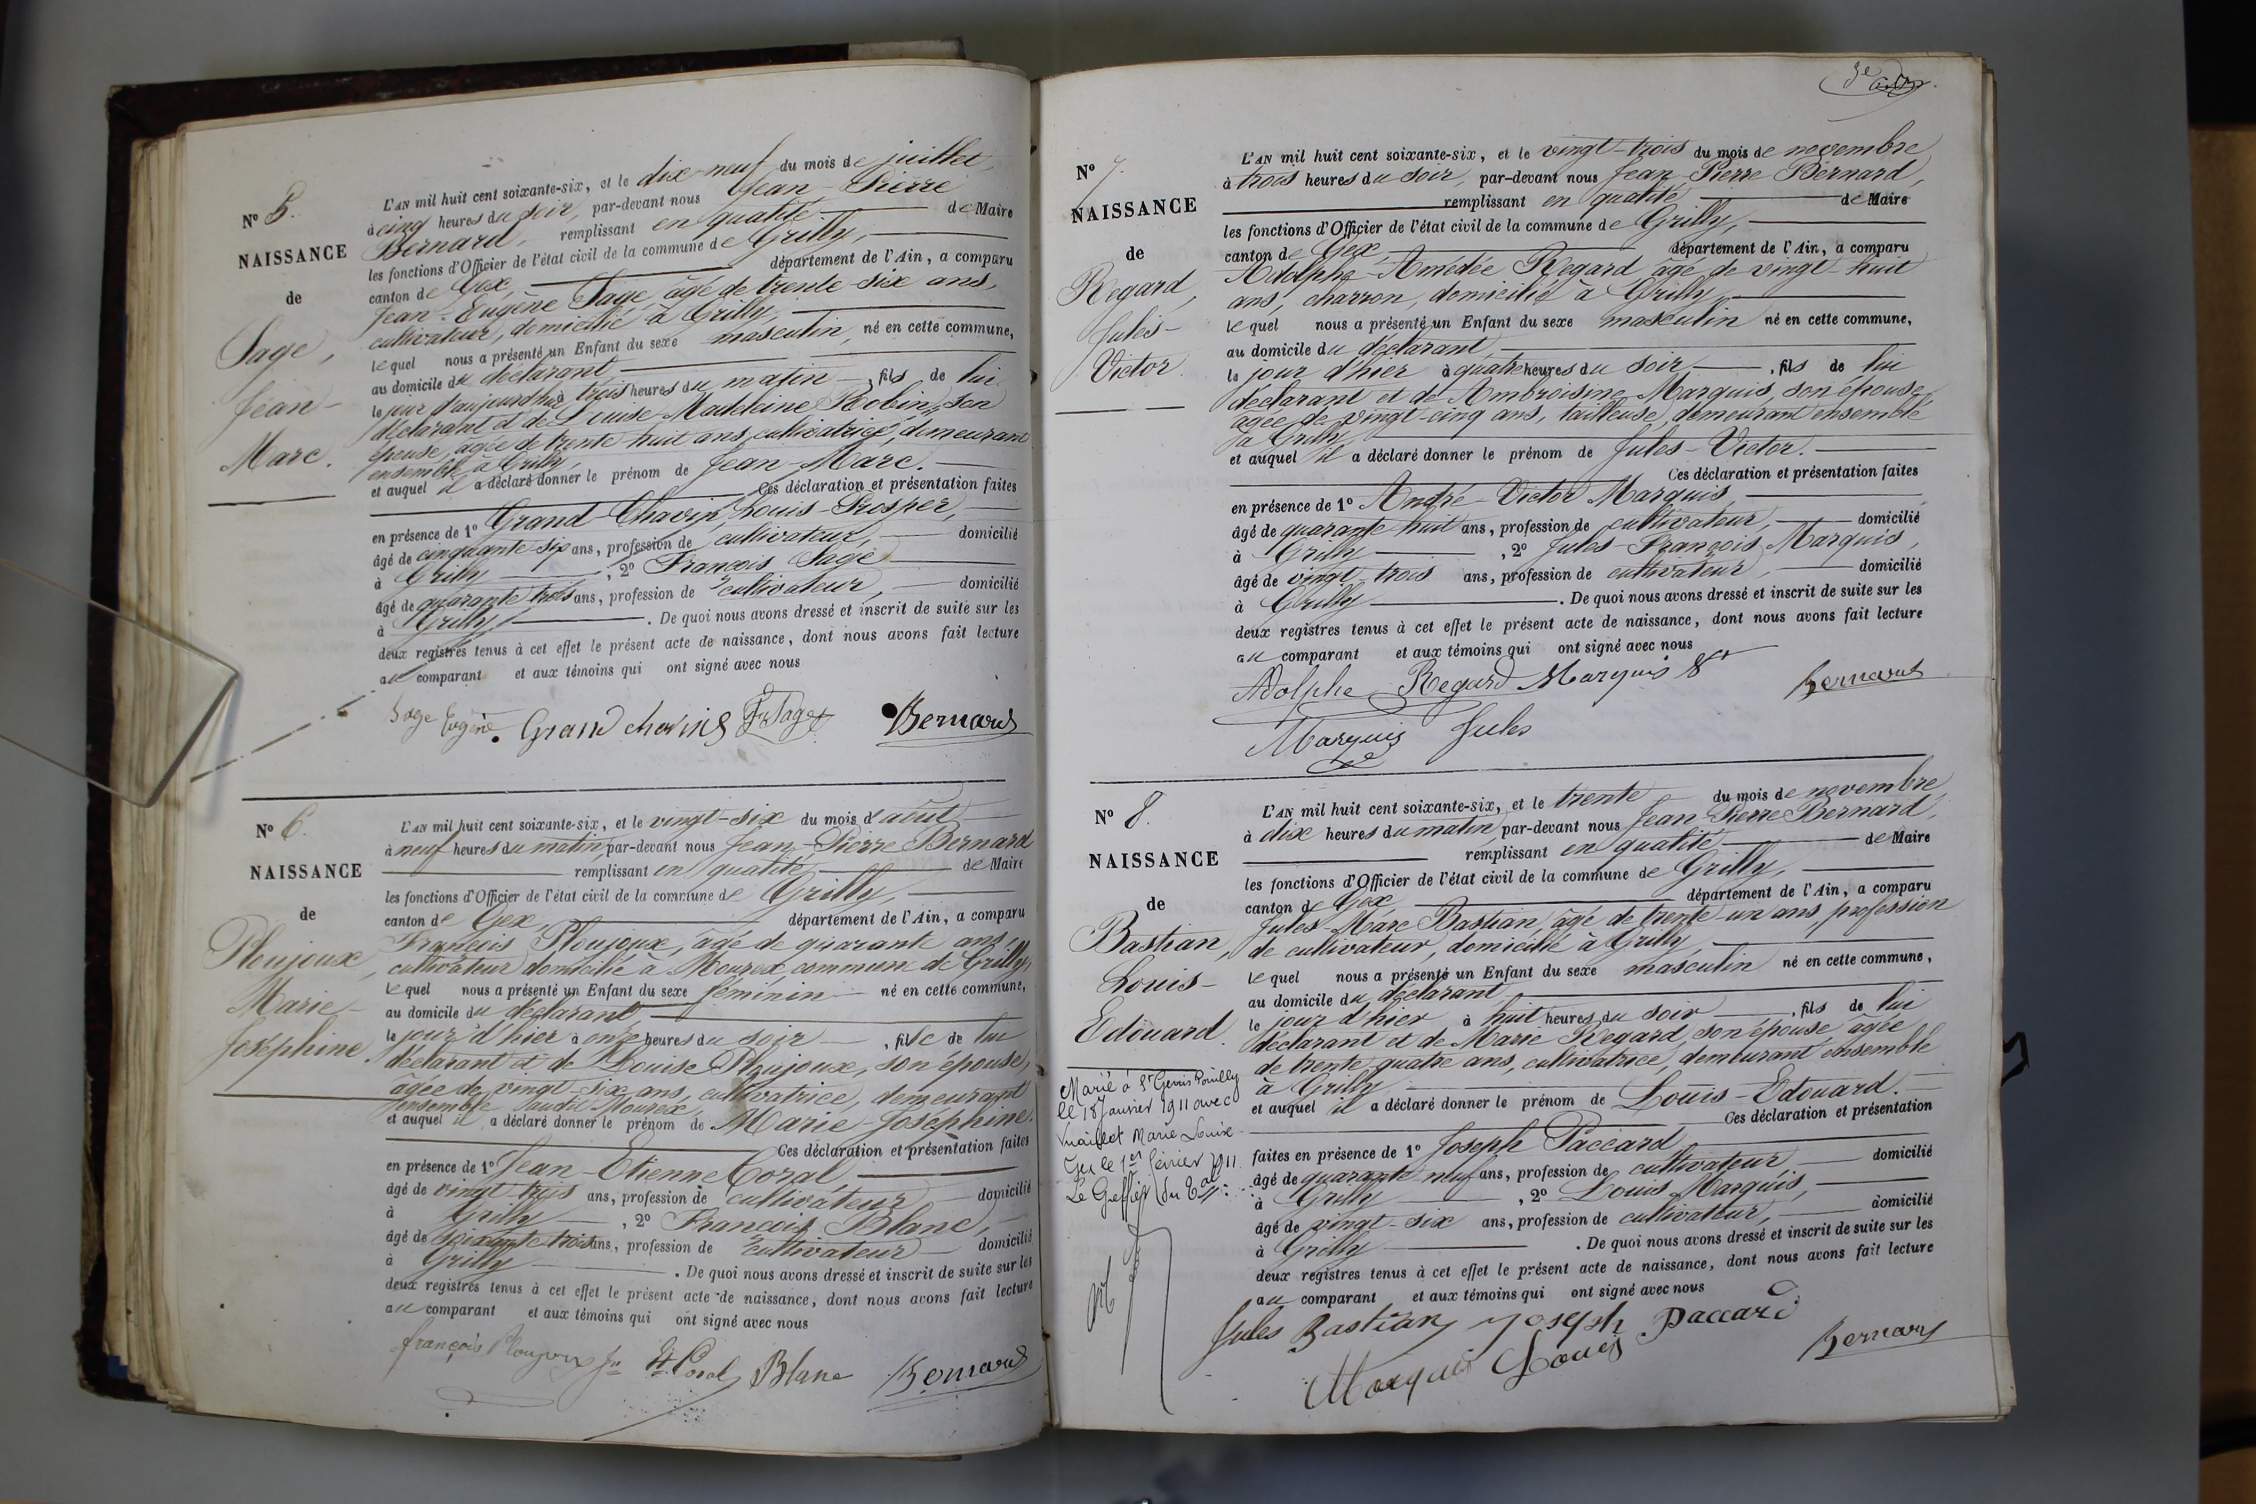 N° 5.
NAISSANCE
de
Sage,
Jean-
Marc.
L'AN mil huit cent soixante-six, et le dix-neuf du mois de juillet,
à cinq heures du soir, par-devant nous Jean-Pierre
Bernard, remplissant en qualité de Maire
les fonctions d'Officier de l'état civil de la commune de Grilly,
canton de Gex, département de l'Ain, a comparu
Jean-Eugène Sage, âgé de trente-six ans,
cultivateur, domicilié à Grilly,
lequel nous a présenté un Enfant du sexe masculin, né en cette commune,
au domicile du déclarant
le jour d'aujourd'hui à trois heures du matin, fils de lui
déclarant et de Louise-Madeleine Robin, son
épouse, âgée de trente huit ans, cultivatrice, demeurant
ensemble à Grilly,
et auquel il a déclaré donner le prénom de Jean-Marc.
Ces déclaration et présentation faites
en présence de 1° Grand-Chavin, Louis-Prosper,
âgé de cinquante six ans, profession de cultivateur, domicilié
à Grilly, 2° François Sage
âgé de quarante trois ans, profession de cultivateur, domicilié
à Grilly. De quoi nous avons dressé et inscrit de suite sur les
deux registres tenus à cet effet le présent acte de naissance, dont nous avons fait lecture
au comparant et aux témoins qui ont signé avec nous
Sage Eugène Grand chavin Fr Sage Bernard
N° 6.
NAISSANCE
de
Ploujoux,
Marie-
Joséphine
L'AN mil huit cent soixante-six, et le vingt-six du mois d'août
à neuf heures du matin, par-devant nous Jean-Pierre Bernard
remplissant en qualité de Maire
les fonctions d'Officier de l'état civil de la commune de Grilly,
canton de Gex, département de l'Ain, a comparu
François Ploujoux, âgé de quarante ans,
cultivateur domicilié à Mourex, commune de Grilly,
lequel nous a présenté un Enfant du sexe féminin né en cette commune,
au domicile du déclarant
le jour d'hier à onze heures du soir, fille de lui
déclarant et de Louise Ploujoux, son épouse,
âgée de vingt-six ans, cultivatrice, demeurant
ensemble audit Mourex,
et auquel il a déclaré donner le prénom de Marie-Joséphine.
Ces déclaration et présentation faites
en présence de 1° Jean-Etienne Coral,
âgé de vingt-trois ans, profession de cultivateur domicilié
à Grilly, 2° François Blanc,
âgé de soixante trois ans, profession de cultivateur domicilié
à Grilly. De quoi nous avons dressé et inscrit de suite sur les
deux registres tenus à cet effet le présent acte de naissance, dont nous avons fait lecture
au comparant et aux témoins qui ont signé avec nous
françois Ploujoux Jn Et Coral Blanc Bernard
3e
N° 7.
NAISSANCE
de
Regard,
Jules-
Victor.
L'AN mil huit cent soixante-six, et le vingt-trois du mois de novembre
à trois heures du soir, par-devant nous Jean-Pierre Bernard,
remplissant en qualité de Maire
les fonctions d'Officier de l'état civil de la commune de Grilly,
canton de Gex, département de l'Ain, a comparu
Adolphe-Amédée Regard âgé de vingt huit
ans, charron, domicilié à Grilly
lequel nous a présenté un Enfant du sexe masculin né en cette commune,
au domicile du déclarant,
le jour d'hier à quatre heures du soir, fils de lui
déclarant et de Ambroisine Marquis, son épouse,
âgée de vingt-cinq ans, tailleuse, demeurant ensemble
à Grilly
et auquel il a déclaré donner le prénom de Jules-Victor.
Ces déclaration et présentation faites
en présence de 1° André-Victor Marquis,
âgé de quarante huit ans, profession de cultivateur, domicilié
à Grilly, 2° Jules-François Marquis,
âgé de vingt-trois ans, profession de cultivateur, domicilié
à Grilly. De quoi nous avons dressé et inscrit de suite sur les
deux registres tenus à cet effet le présent acte de naissance, dont nous avons fait lecture
au comparant et aux témoins qui ont signé avec nous
Adolphe Regard Marquis Bernard
Marquis Jules
N° 8.
NAISSANCE
de
Bastian,
Louis-
Edouard.
L'AN mil huit cent soixante-six, et le trente du mois de novembre,
à dix heures du matin, par-devant nous Jean-Pierre Bernard,
remplissant en qualité de Maire
les fonctions d'Officier de l'état civil de la commune de Grilly,
canton de Gex, département de l'Ain, a comparu
Jules-Marc Bastian, âgé de trente un ans, profession
de cultivateur, domicilié à Grilly,
lequel nous a présenté un Enfant du sexe masculin né en cette commune,
au domicile du déclarant
le jour d'hier à huit heures du soir, fils de lui
déclarant et de Marie Regard, son épouse, âgée
de trente quatre ans, cultivatrice, demeurant ensemble
à Grilly
et auquel il a déclaré donner le prénom de Louis-Edouard.
Ces déclaration et présentation
faites en présence de 1° Joseph Paccard
âgé de quarante neuf ans, profession de cultivateur domicilié
à Grilly, 2° Louis Marquis,
âgé de vingt-six ans, profession de cultivateur, domicilié
à Grilly. De quoi nous avons dressé et inscrit de suite sur les
deux registres tenus à cet effet le présent acte de naissance, dont nous avons fait lecture
au comparant et aux témoins qui ont signé avec nous
Jules Bastian Joseph Paccard
Marquis Louis Bernard
Marié à St Genis Pouilly
le 18 Janvier 1911 avec
Vuaillet Marie Louise
Gex le 1er février 1911
Le Greffier du Tal